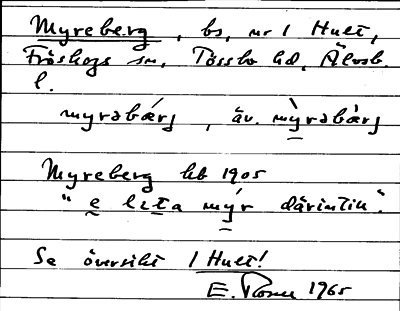 Myreberg, bs, nr 1 Hult,
Fröskogs sn, Tössbo hd, Älvsb.
l.
myrəbærj, äv. mỳrəbàrj
Myreberg hb 1905
"e lita mýr därintill".
Se översikt 1 Hult!
E. 1965